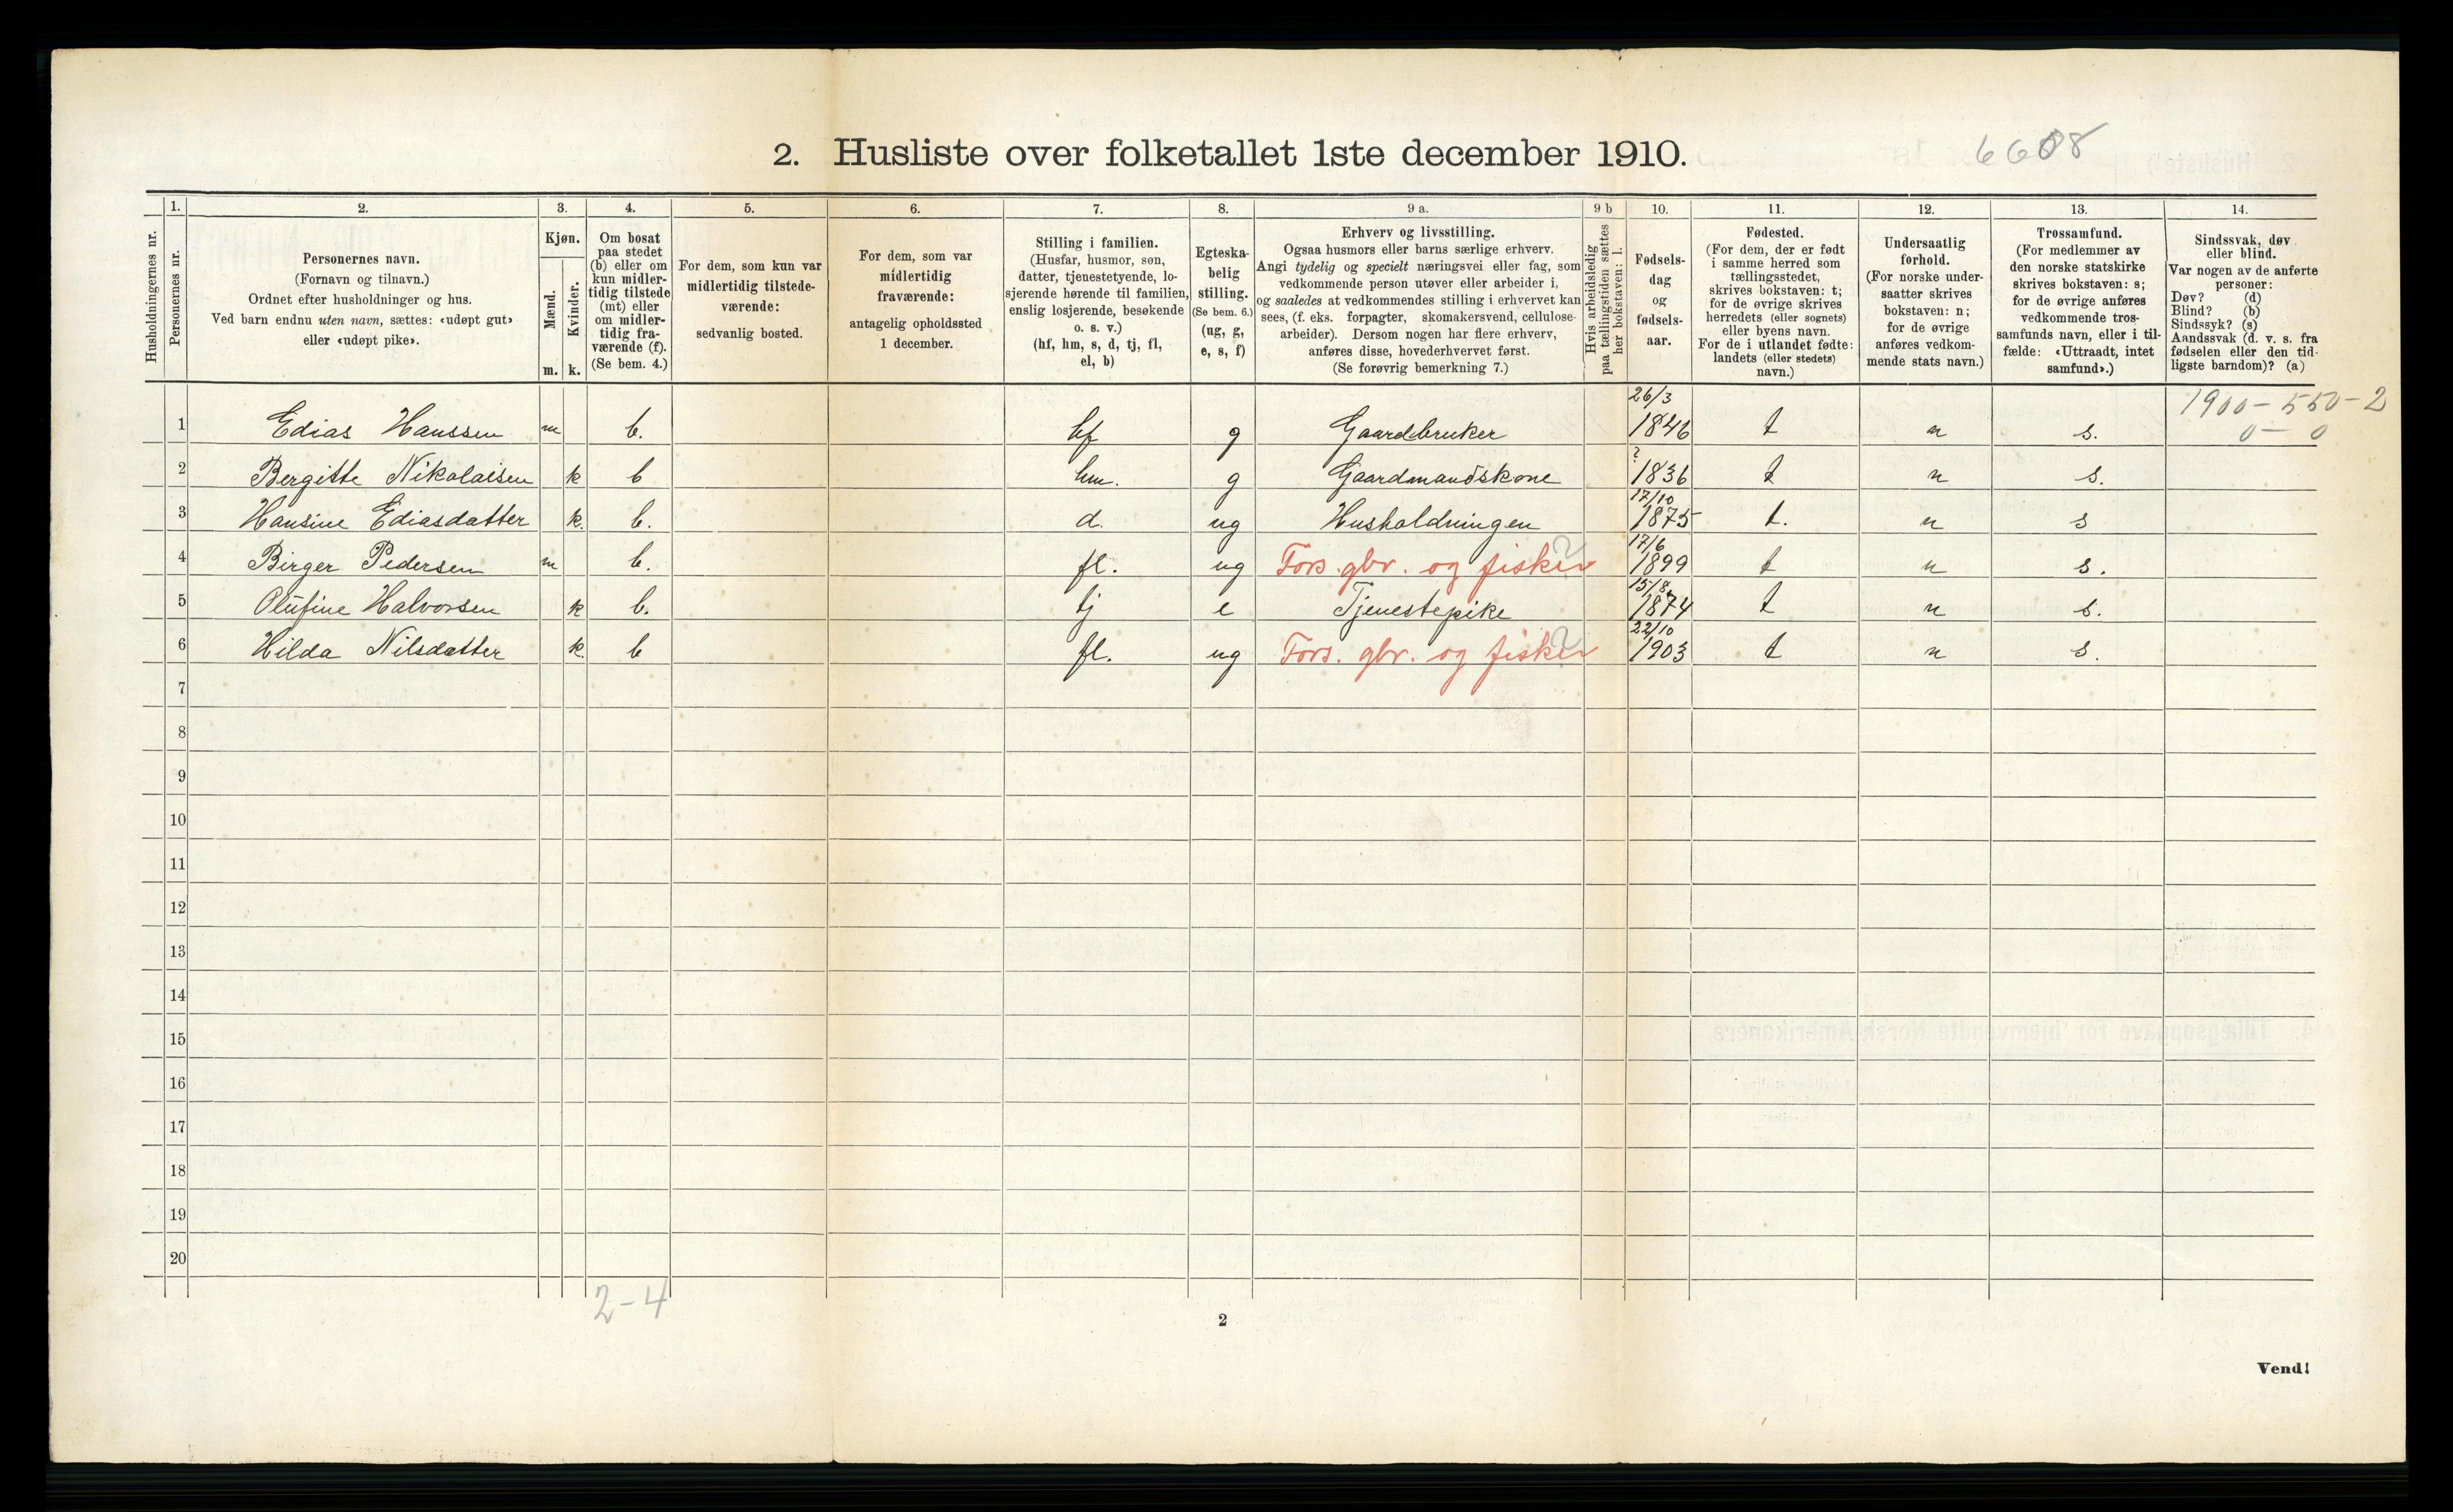 2. Husliste over folketallet 1ste december 1910.
6608
1. 2. 3. 4. 5. 6. 7. 8. 9 a. 9 b 10. 11. 12. 13. 14.
Husholdningernes nr.
Personernes nr.
Personernes navn.
(Fornavn og tilnavn.)
Ordnet efter husholdninger og hus.
Ved barn endnu uten navn, sættes: «udøpt gut»
eller «udøpt pike».
Kjøn.
Mænd.
Kvinder.
m. k.
Om bosat
paa stedet
(b) eller om
kun midler-
tidig tilstede
(mt) eller
om midler-
tidig fra-
værende (f).
(Se bem. 4.)
For dem, som kun var
midlertidig tilstede-
værende:
sedvanlig bosted.
For dem, som var
midlertidig
fraværende:
antagelig opholdssted
1 december.
Stilling i familien.
(Husfar, husmor, søn,
datter, tjenestetyende, lo-
sjerende hørende til familien,
enslig losjerende, besøkende
o. s. v.)
(hf, hm, s, d, tj, fl,
el, b)
Egteska-
belig
stilling.
(Se bem. 6.)
(ug, g,
e, s, f)
Erhverv og livsstilling.
Ogsaa husmors eller barns særlige erhverv.
Angi tydelig og specielt næringsvei eller fag, som
vedkommende person utøver eller arbeider i,
og saaledes at vedkommendes stilling i erhvervet kan
sees, (f. eks. forpagter, skomakersvend, cellulose-
arbeider). Dersom nogen har flere erhverv,
anføres disse, hovederhvervet først.
(Se forøvrig bemerkning 7.)
Hvis arbeidsledig
paa tællingstiden sættes
her bokstaven: l.
Fødsels-
dag
og
fødsels-
aar.
Fødested.
(For dem, der er født
i samme herred som
tællingsstedet,
skrives bokstaven: t;
for de øvrige skrives
herredets (eller sognets)
eller byens navn.
For de i utlandet fødte:
landets (eller stedets)
navn.)
Undersaatlig
forhold.
(For norske under-
saatter skrives
bokstaven: n;
for de øvrige
anføres vedkom-
mende stats navn.)
Trossamfund.
(For medlemmer av
den norske statskirke
skrives bokstaven: s;
for de øvrige anføres
vedkommende tros-
samfunds navn, eller i til-
fælde: «Uttraadt, intet
samfund».)
Sindssvak, døv
eller blind.
Var nogen av de anførte
personer:
Døv? (d)
Blind? (b)
Sindssyk? (s)
Aandssvak (d. v. s. fra
fødselen eller den tid-
ligste barndom)? (a)
1900 - 550 - 2
0 - 0
1 Edias Hanssen m b. hf g Gaardbruker 26/3 1846 t n s.
2 Bergitte Nikolaisen k b hm. g Gaardmandskone ? 1836 t n s.
3 Hansine Ediasdatter k. b. d. ug Husholdningen 17/10 1875 t. n s
4 Birger Pedersen m b. fl. ug Fors. gbr. og fisker 2 17/6 1899 t n s.
5 Olufine Halvorsen k b. tj e Tjenestepike 15/8 1874 t n s.
6 Hilda Nilsdatter k. b fl. ug Fors. gbr. og fisker 2 22/10 1903 t n s.
7
8
9
10
11
12
13
14
15
16
17
18
19
20
2-4
2
Vend!